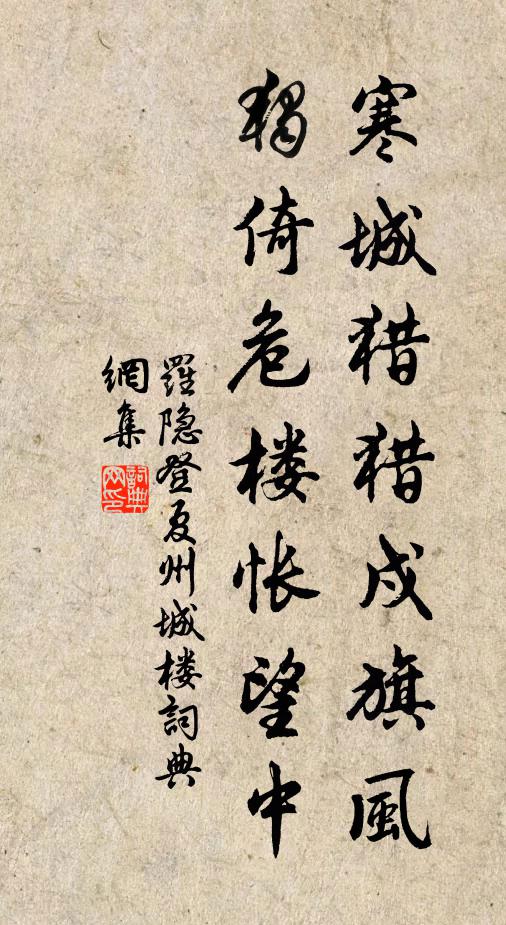 寒城猎猎戍旗風
獨倚危楼怅望中
羅隐登夏州城楼詞典
網集
詞典网印